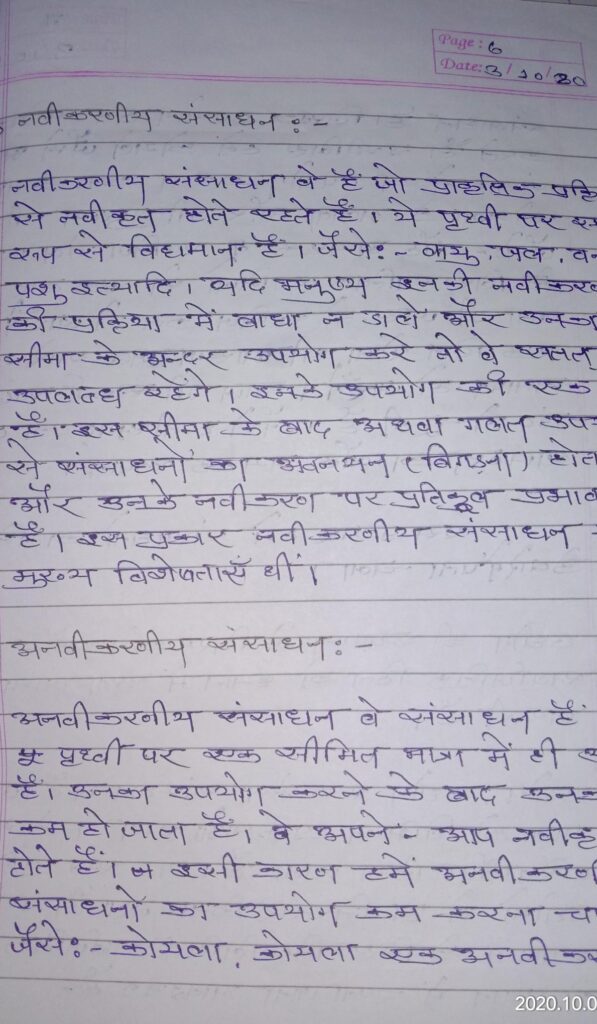 Page: 6
Date: 3/10/20
नवीकरणीय संसाधन :-
नवीकरणीय संसाधन वे हैं जो प्राकृतिक
से नवीकृत होते रहते हैं। ये पृथ्वी पर
रूप से विद्यमान हैं। जैसे:- वायु, जल,
पशु इत्यादि। यदि मनुष्य इनकी
की प्रक्रिया में बाधा न डाले और उनका
सीमा के अन्दर उपयोग करे तो वे सतत्
उपलब्ध रहेंगे। इनके उपयोग की एक
है। इस सीमा के बाद अथवा गलत
से संसाधनों का अवनयन (बिगड़ना)
और उनके नवीकरण पर प्रतिकूल प्रभाव
है। इस प्रकार नवीकरणीय संसाधन
मुख्य विशेषताएँ थीं।
अनवीकरणीय संसाधन:-
अनवीकरणीय संसाधन वे संसाधन हैं
पृथ्वी पर एक सीमित मात्रा में ही
हैं। उनका उपयोग करने के बाद
कम हो जाता है। वे अपने - आप
होते हैं। न इसी कारण हमें
संसाधनों का उपयोग कम करना
जैसे:- कोयला, कोयला एक
2020.10.0